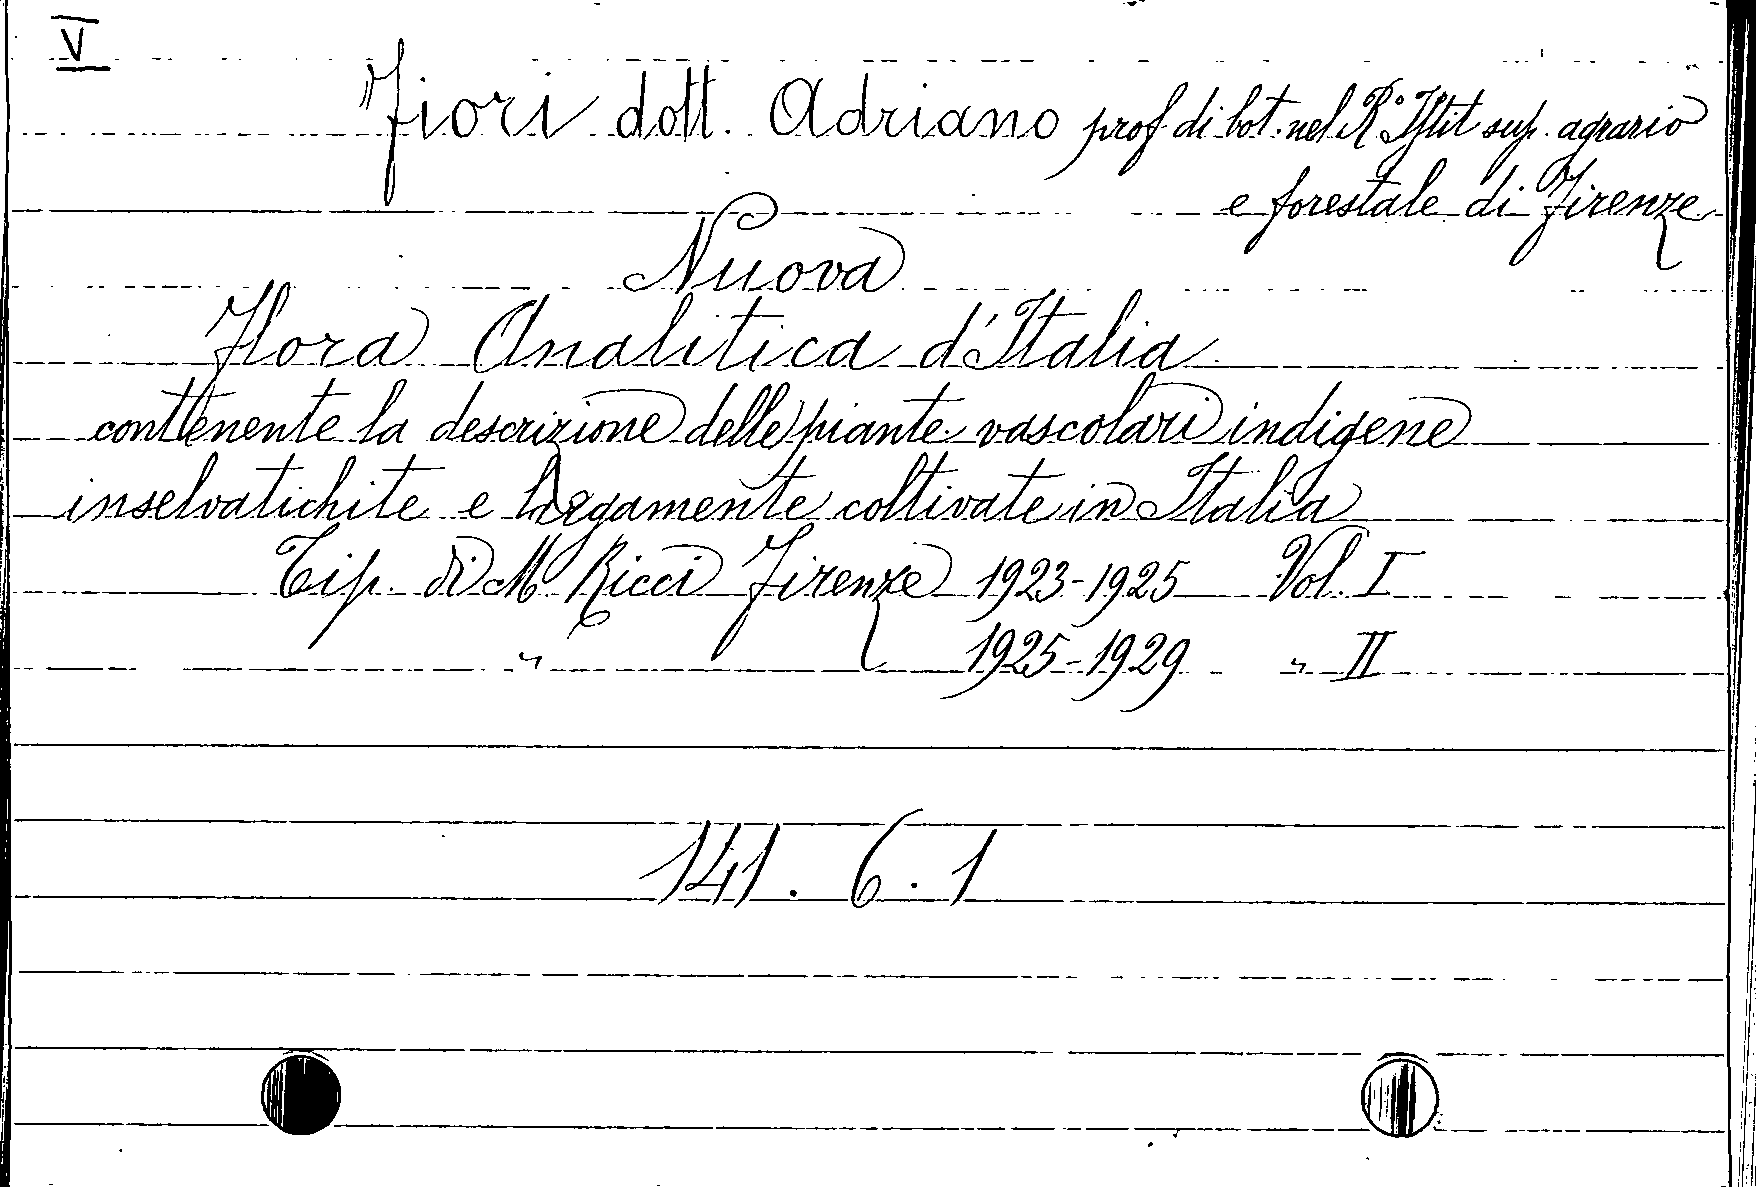 V
Fiori dott. Adriano prof. di bot. nel R.º Istit sup. agrario
e forestale di Firenze
Nuova
Flora Analitica d'Italia
contenente la descrizione delle piante vascolari indigene
inselvatichite e largamente coltivate in Italia
Tip. di M. Ricci Firenze 1923-1925 Vol. I
" 1925-1929 " II
141. 6. 1